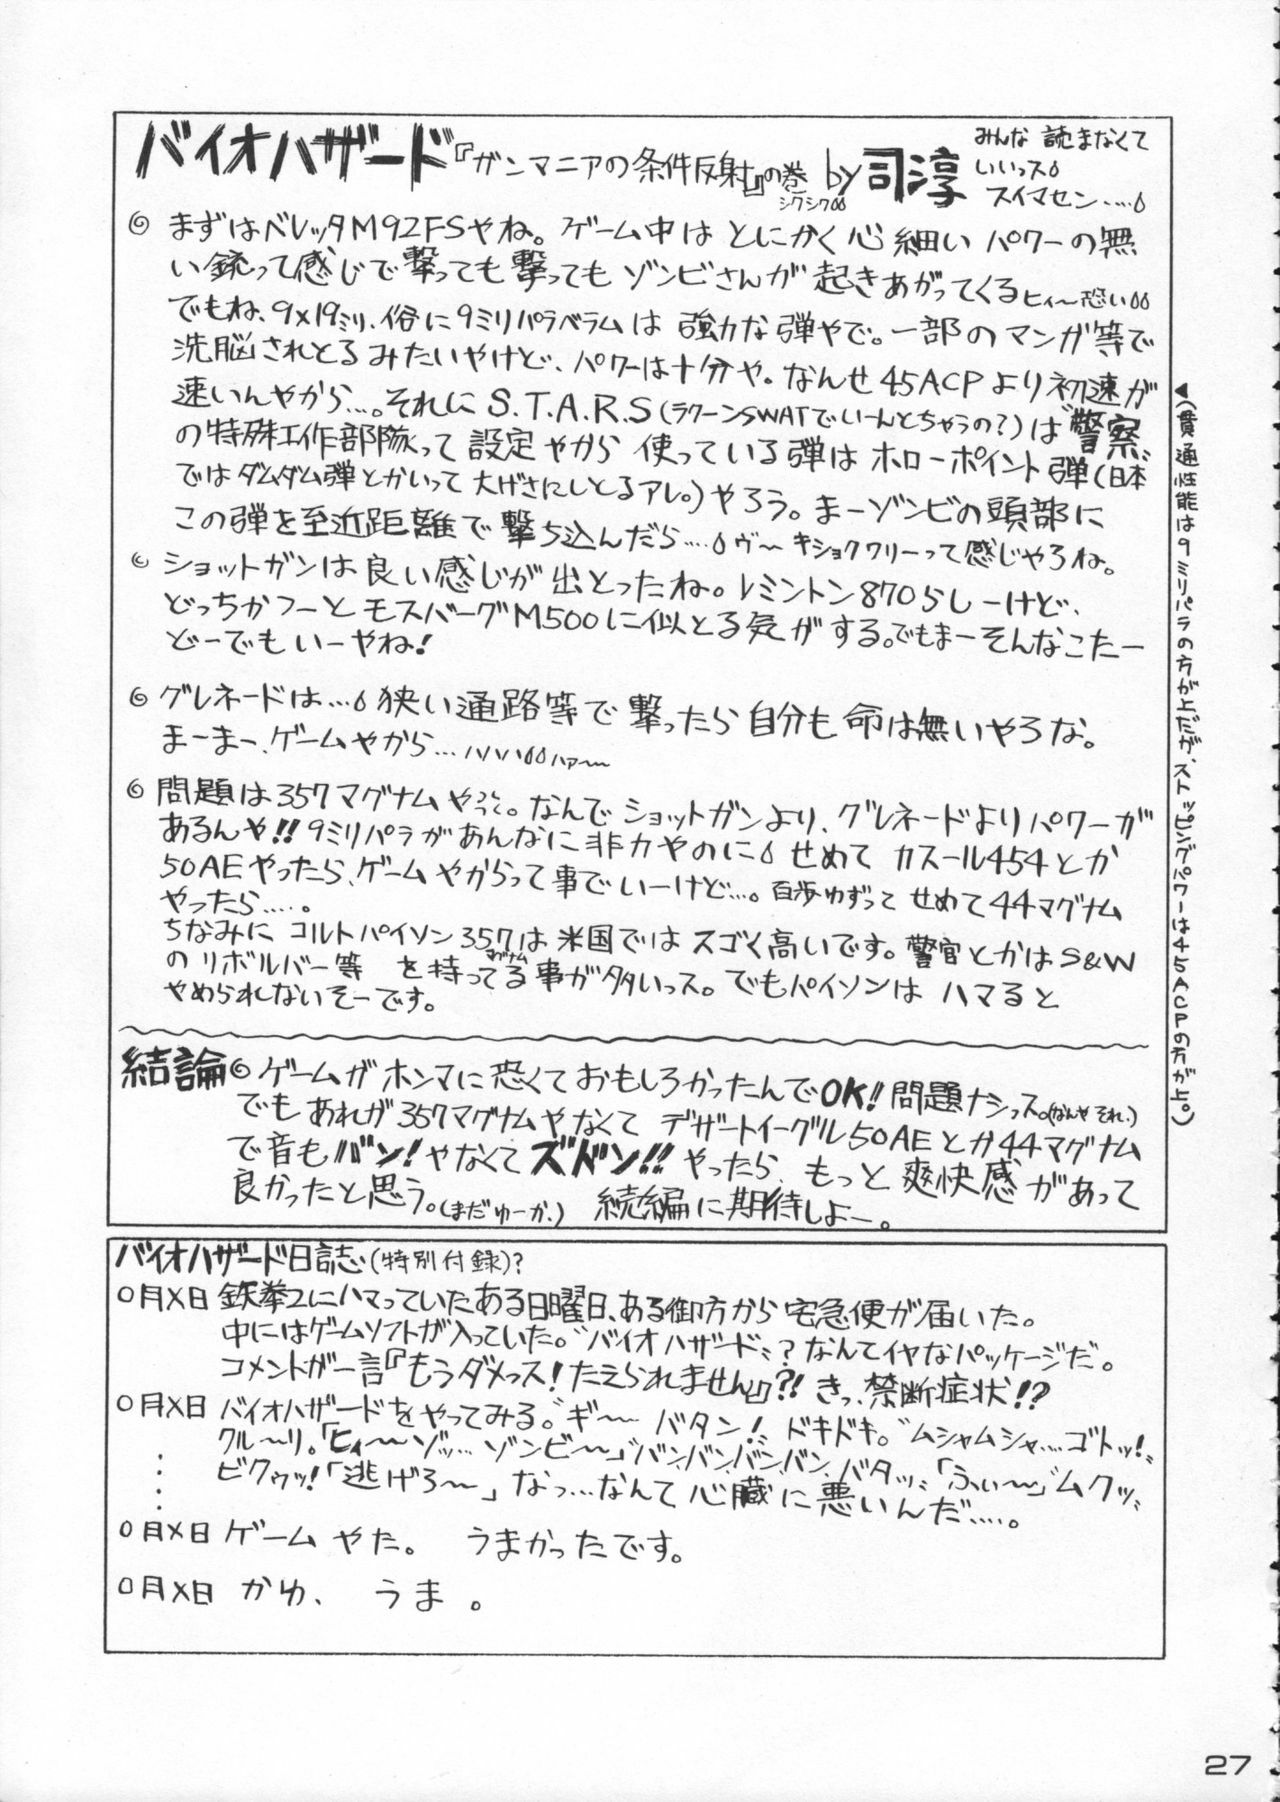 バイオハザード『ガンマニアの条件反射』の巻 by 司淳
シクシク
みんな 読まなくて
いいっス
スイマセン....
まずはベレッタM92FSやね。ゲーム中は とにかく心細い パワーの無
い銃って感じで撃っても撃っても ゾンビさんが 起きあがってくるヒィ〜恐い
でもね、9×19ミリ、俗に9ミリパラベラムは 強力な弾やで。一部のマンガ等で
洗脳されとるみたいやけど、パワーは十分や。なんせ45ACPより初速が
速いんやから...。それにS.T.A.R.S(ラクーンSWATでいーんとちゃうの?)は〝警察〟
の特殊工作部隊って 設定やから 使っている弾は ホローポイント弾(日本
ではダムダム弾とかいって 大げさにしとるアレ。)やろう。まーゾンビの頭部に
この弾を至近距離で 撃ち込んだら....ヴ〜 キショクワリーって感じやろね。
ショットガンは良い感じが出とったね。レミントン870らしーけど、
どっちかつーと モスバーグM500に似とる気がする。でもまーそんなこたー
どーでもいーやね!
グレネードは...狭い通路等で撃ったら 自分も 命は無いやろな。
まーまー、ゲームやから...ハハハハァ〜
問題は357マグナムやっつ。なんでショットガンより、グレネードよりパワーが
あるんや!!9ミリパラがあんなに非力やのに せめて カスール454とか
50AEやったら、ゲームやからって事でいーけど...。百歩ゆずって せめて44マグナム
やったら....。
ちなみに コルトパイソン357は米国では スゴく高いです。警官とかはS&W
の リボルバー等 を持ってる事が多いっス。でもパイソンは ハマると
マグナム
やめられしないそーです。
▲(貫通性能は9ミリパラの方が上だが、ストッピングパワーは45ACPの方が上。)
結論 ゲームがホンマに恐くておもしろかったんでOK!問題ナシっス。(なんやそれ.)
でもあれが357マグナムやなくて デザートイーグル50AEとか44マグナム
で音もバン!やなくてズドン!!やったら、もっと爽快感があって
良かったと思う。(まだゆーか.) 続編に期待しよー。
バイオハザード日誌(特別付録)?
〇月×日 鉄拳2にハマっていたある日曜日、ある御方から宅急便が届いた。
中にはゲームソフトが入っていた。〝バイオハザード〟?なんてイヤなパッケージだ。
コメントが一言『もうダメっス!たえられません』?!きっ、禁断症状!?
〇月×日 バイオハザードをやってみる。〝ギ〜 バタン!〟ドキドキ。〝ムシャムシャ....ゴトッ!〟
クル〜リ。「ヒィ〜ゾッ...ゾンビ〜」バン、バン、バン、バン、バタッ〟「ふぃ〜」〝ムクッ〟
ビクゥッ!「逃げろ〜」なっ...なんて心臓に悪いんだ....。
〇月×日 ゲーム やた。 うまかったです。
〇月×日 かゆ、 うま 。
27